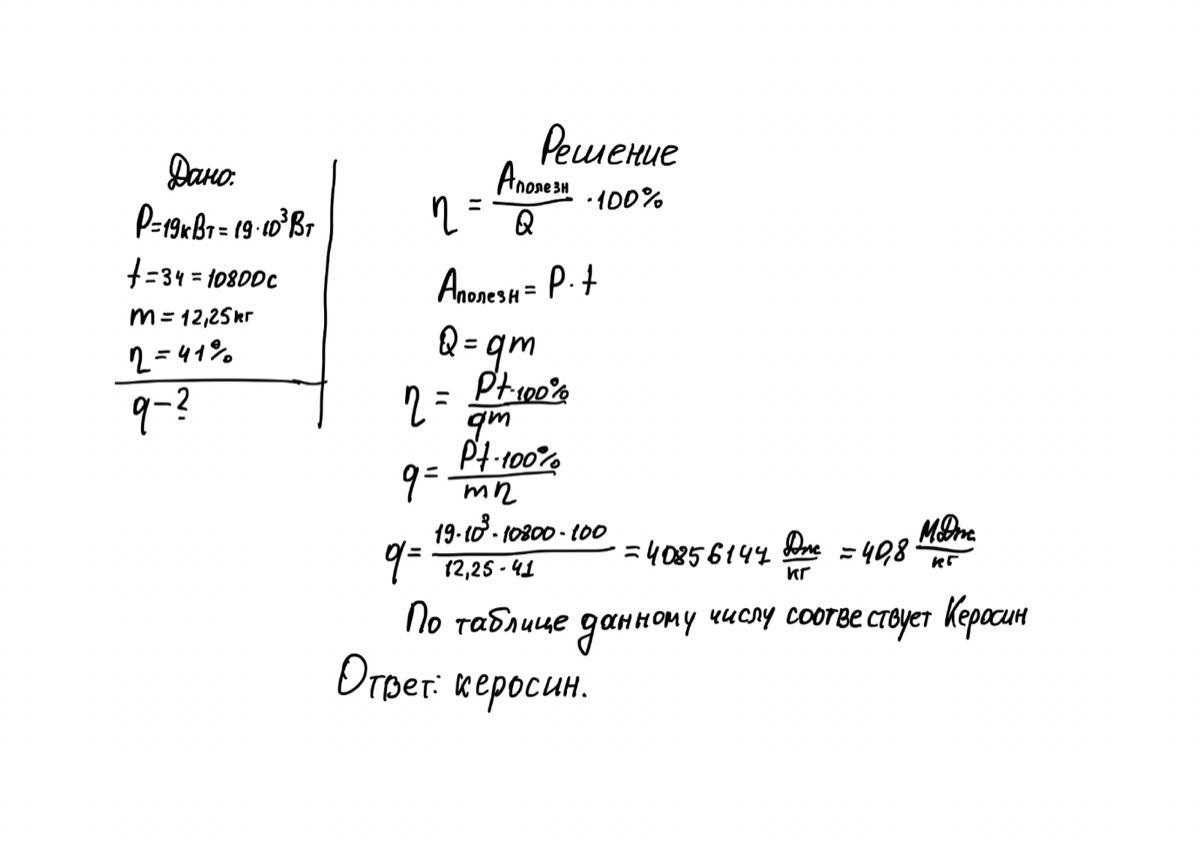 Дано:
P=19кВт=19·10³Вт
t=3ч=10800с
m=12,25кг
η=41%
q-?
Решение
η = Aполезн / Q ·100%
Aполезн = P·t
Q = qm
η = Pt·100% / qm
q = Pt·100% / mη
q = 19·10³·10800·100 / 12,25·41 = 40856147 Дж/кг = 40,8 МДж/кг
По таблице данному числу соотвествует Керосин
Ответ: керосин.